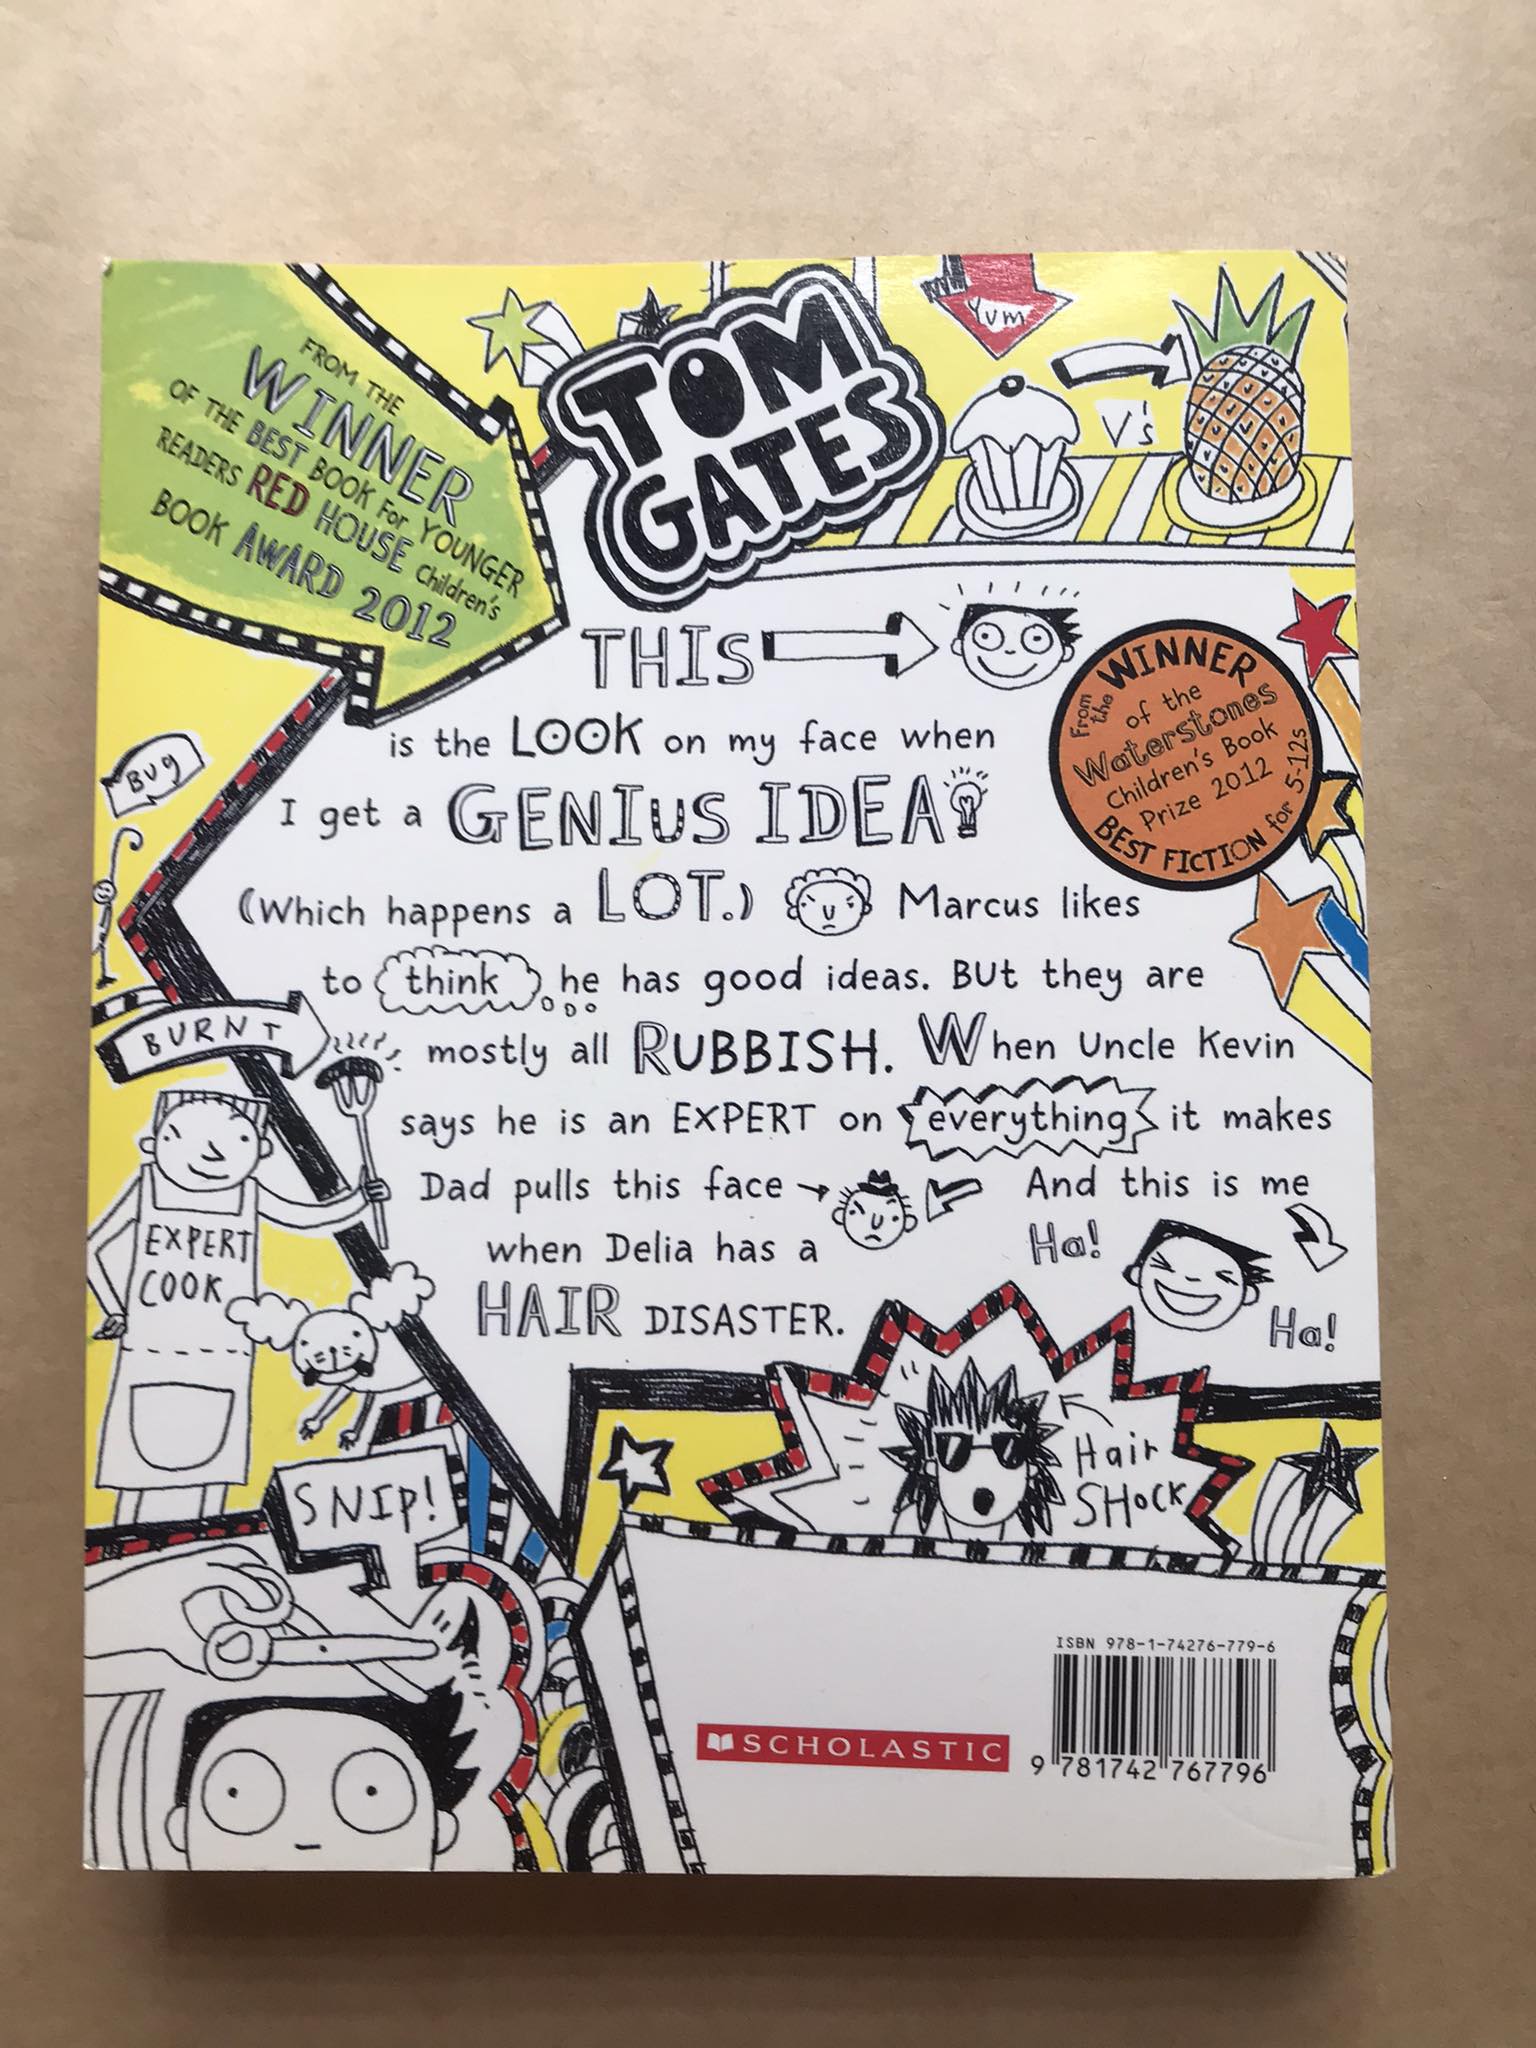 FROM THE
WINNER
OF THE BEST BOOK FOR YOUNGER
READERS RED HOUSE Children's
BOOK AWARD 2012
TOM
GATES
Yum
V's
THIS
is the LOOK on my face when
I get a GENIUS IDEA
(Which happens a LOT.) Marcus likes
to think he has good ideas. BUt they are
mostly all RUBBISH. When Uncle Kevin
says he is an EXPERT on everything it makes
Dad pulls this face And this is me
when Delia has a
HAIR DISASTER.
Ha!
Ha!
From the WINNER
of the
Waterstones
Children's Book
Prize 2012
BEST FICTION for 5-12s
Bug
BURNT
EXPERT
COOK
SNIP!
Hair
SHOCK
ISBN 978-1-74276-779-6
SCHOLASTIC
9 781742 767796